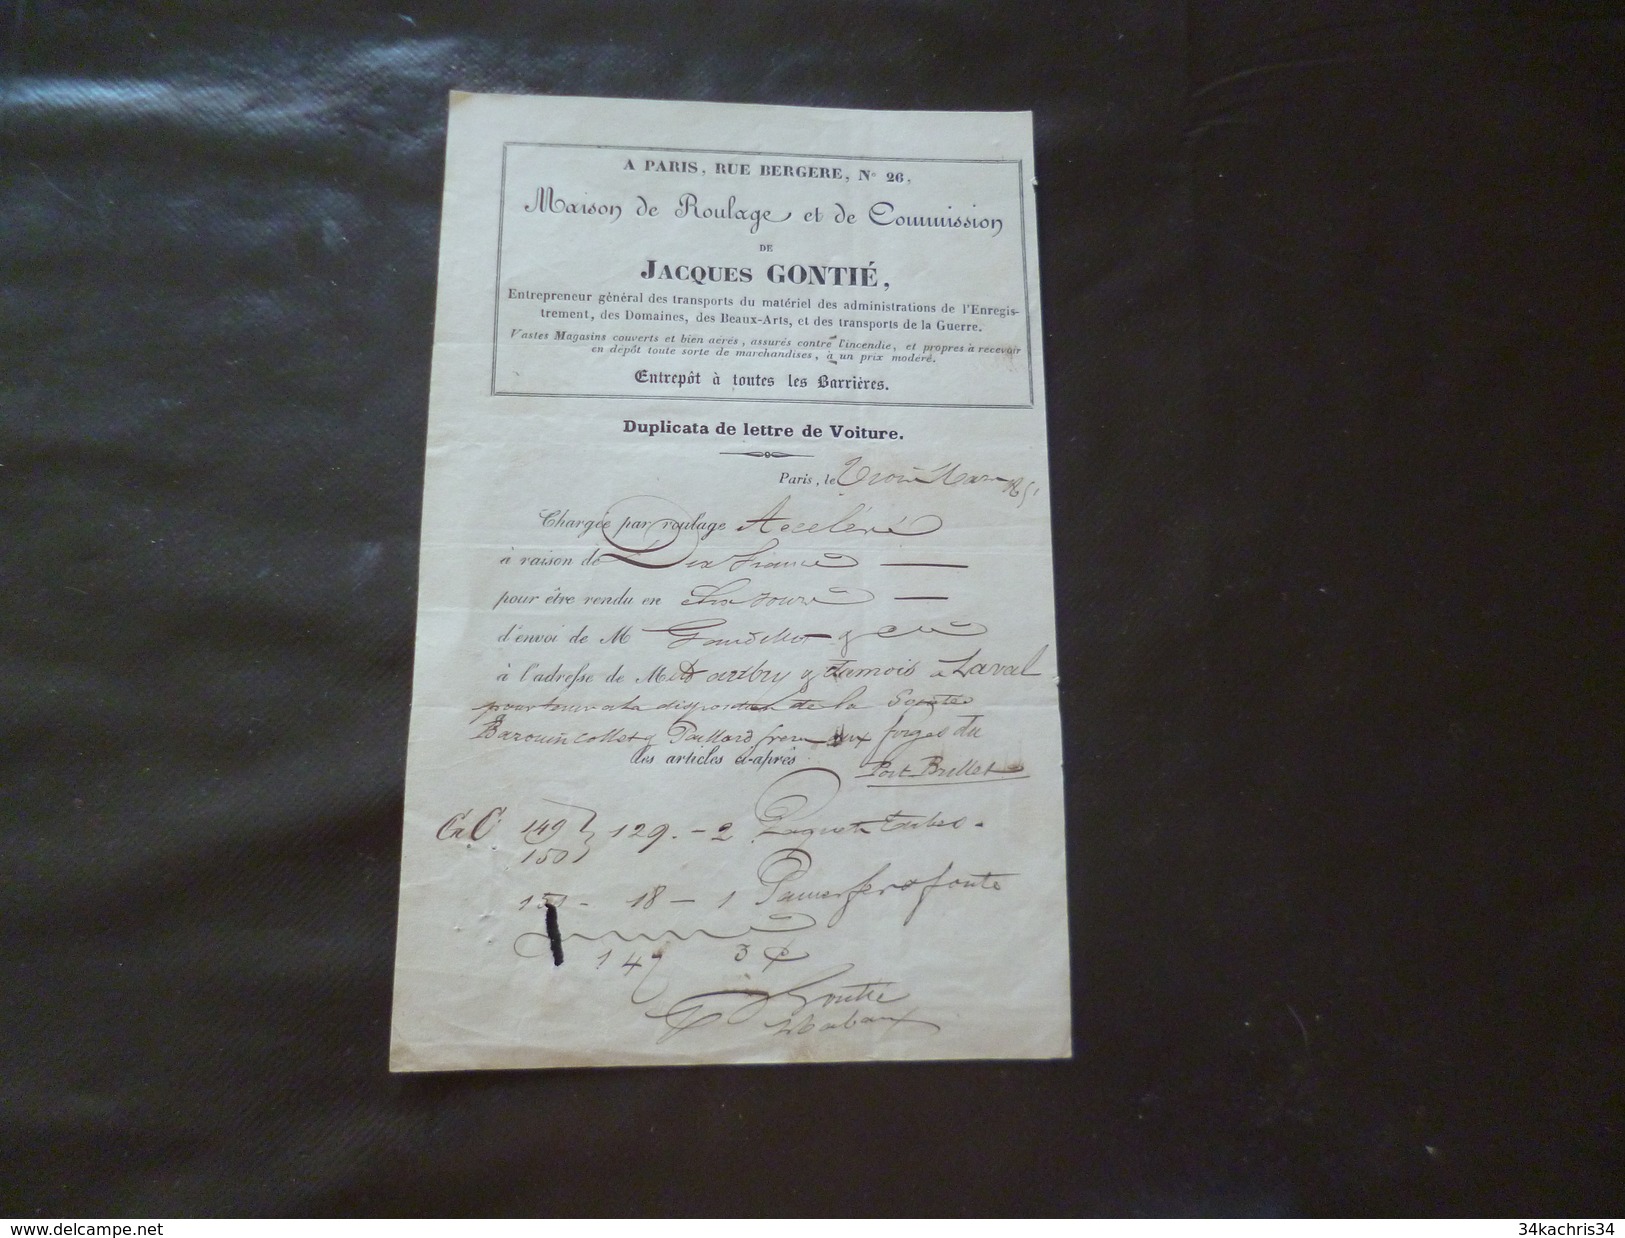 A PARIS, RUE BERGERE, N° 26,
Maison de Roulage et de Commission
DE
JACQUES GONTIÉ,
Entrepreneur général des transports du matériel des administrations de l'Enregis-
trement, des Domaines, des Beaux-Arts, et des transports de la Guerre.
Vastes Magasins couverts et bien aérés, assurés contre l'incendie, et propres à recevoir
en dépôt toute sorte de marchandises, à un prix modéré.
Entrepôt à toutes les Barrières.
Duplicata de lettre de Voiture.
Paris, le Trois Mars
Chargée par roulage Accéléré
à raison de Dix francs
pour être rendu en Six jours
d'envoi de M
à l'adresse de M à Laval
pour tenir a la disposition de la Société
Paillard frères aux forges du
des articles ci-après Port Brillet
G C 149 129. - 2 Paquets
150
151 - 18 - 1 Panier fer & fonte
147 3 C
Gontié
34kachris34
delcampe.net